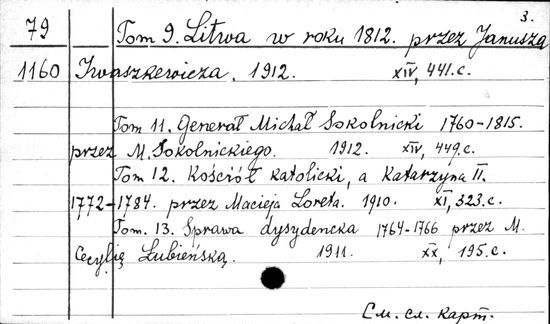 3.
79 Tom 9. Litwa w roku 1812. przez Janusza
1160 Iwaszkewicza. 1912. XIV, 441.c.
Tom 11. Generał Michał Sokolnicki 1760-1815.
przez M. Sokolnickiego. 1912. XIV, 449.c.
Tom 12. Kościół katolicki, a Katarzyna II.
1772-1784. przez Macieja Loreta. 1910. XI, 323.c.
Tom. 13. Sprawa dysydencka 1764-1766 przez M.
Cecylię Łubieńską. 1911. XX, 195.c.
См. сл. карт.